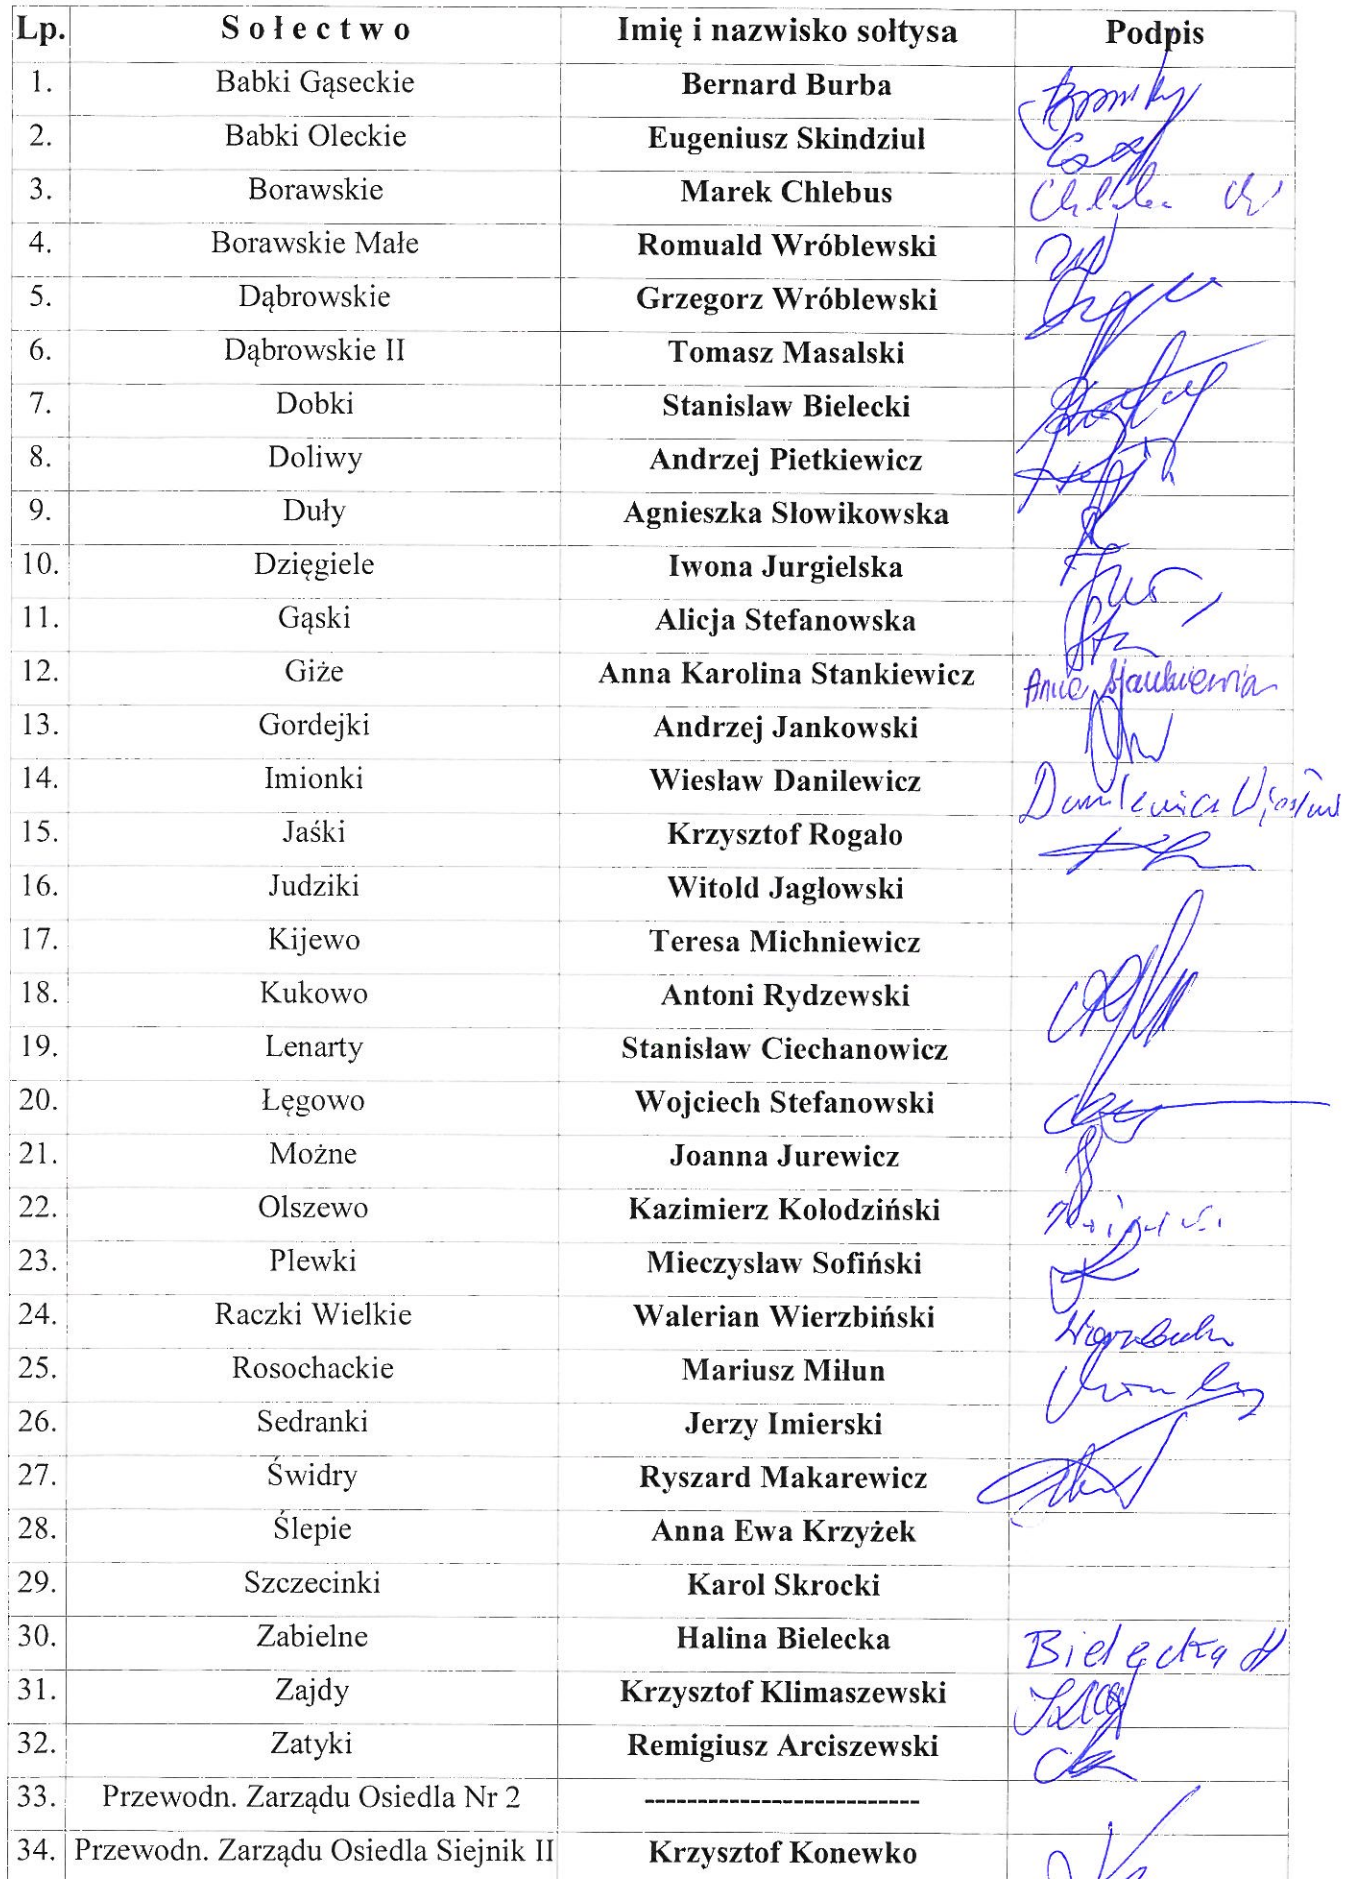 Lp. Sołectwo Imię i nazwisko sołtysa Podpis
1. Babki Gąseckie Bernard Burba
2. Babki Oleckie Eugeniusz Skindziul
3. Borawskie Marek Chlebus
4. Borawskie Małe Romuald Wróblewski
5. Dąbrowskie Grzegorz Wróblewski
6. Dąbrowskie II Tomasz Masalski
7. Dobki Stanisław Bielecki
8. Doliwy Andrzej Pietkiewicz
9. Duły Agnieszka Słowikowska
10. Dzięgiele Iwona Jurgielska
11. Gąski Alicja Stefanowska
12. Giże Anna Karolina Stankiewicz Anna Stankiewicz
13. Gordejki Andrzej Jankowski
14. Imionki Wiesław Danilewicz Danilewicz Wiesław
15. Jaśki Krzysztof Rogało
16. Judziki Witold Jagłowski
17. Kijewo Teresa Michniewicz
18. Kukowo Antoni Rydzewski
19. Lenarty Stanisław Ciechanowicz
20. Łęgowo Wojciech Stefanowski
21. Możne Joanna Jurewicz
22. Olszewo Kazimierz Kołodziński
23. Plewki Mieczysław Sofiński
24. Raczki Wielkie Walerian Wierzbiński
25. Rosochackie Mariusz Miłun
26. Sedranki Jerzy Imierski
27. Świdry Ryszard Makarewicz
28. Ślepie Anna Ewa Krzyżek
29. Szczecinki Karol Skrocki
30. Zabielne Halina Bielecka Bielecka H
31. Zajdy Krzysztof Klimaszewski
32. Zatyki Remigiusz Arciszewski
33. Przewodn. Zarządu Osiedla Nr 2 --------------------------
34. Przewodn. Zarządu Osiedla Siejnik II Krzysztof Konewko